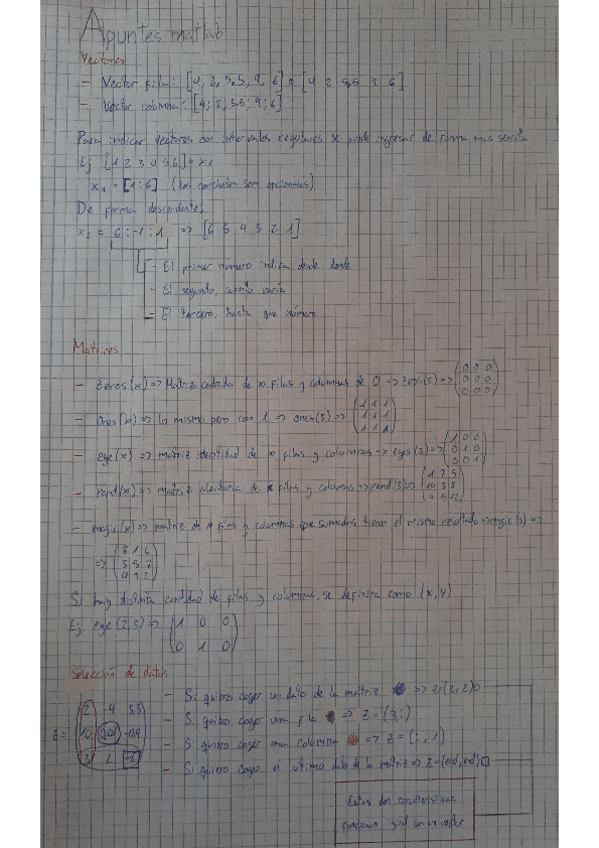 Apuntes matlab
Vectores
- Vector fila: [4, 2, 5.5, 9, 6] o [4 2 5,5 9 6]
- Vector columna: [4; 2; 5.5; 9; 6]
Para indicar vectores con intervalos regulares se puede ingresar de forma mas sencilla
Ej [1 2 3 4 5 6] = x1
x1 = [1:6] (los corchetes son opcionales)
De forma descendente
= 6:-1:1 => [6 5 4 3 2 1]
- El primer número indica desde donde
- El segundo, cuanto varía
- El tercero, hasta que número
Matrices
- zeros(x) => Matriz cuadrada de x filas y columnas de 0 -> zeros(3) => (0 0 0
0 0 0
0 0 0)
- ones(x) => lo mismo pero con 1 => ones(3) => (1 1 1
1 1 1
1 1 1)
- eye(x) => matriz identidad de x filas y columnas => eye(3) => (1 0 0
0 1 0
0 0 1)
- rand(x) => matriz aleatoria de x filas y columnas -> rand(3) =>
- magic(x) => matriz de x filas y columnas que sumados tienen el mismo resultado -> magic(3) =>
=> (8 1 6
3 5 7
4 9 2)
Si hay distinta cantidad de filas y columnas, se definira como (x,y)
Ej eye(2,3) => (1 0 0
0 1 0)
Selección de datos
- Si quiero coger un dato de la matriz => z=(2,2)
- Si quiero coger una fila => z=(3,:)
- Si quiero coger una columna => z=(:,1)
- Si quiero coger el ultimo dato de la matriz => z=(end,end)
z = (2 -4 3,5
10 -0,4
3 2 -6)
Estas dos características
funcionan igual con un vector